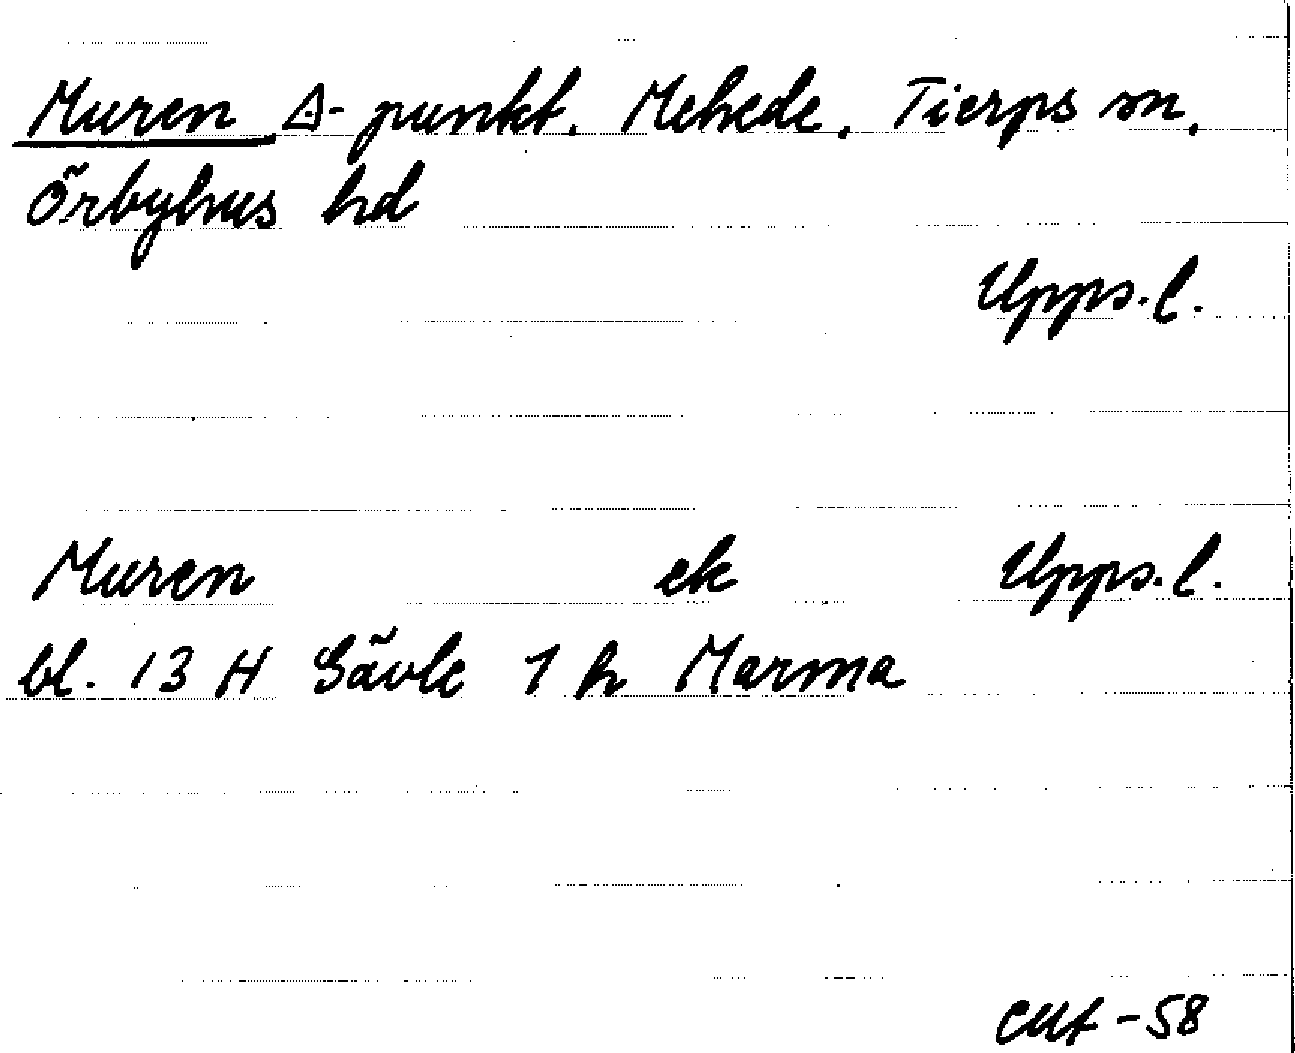 Muren △-punkt. Mehede, Tierps sn,
Örbyhus hd
Upps.l.
Muren ek Upps.l.
bl. 13 H Gävle 1 h Marma
CMf-58